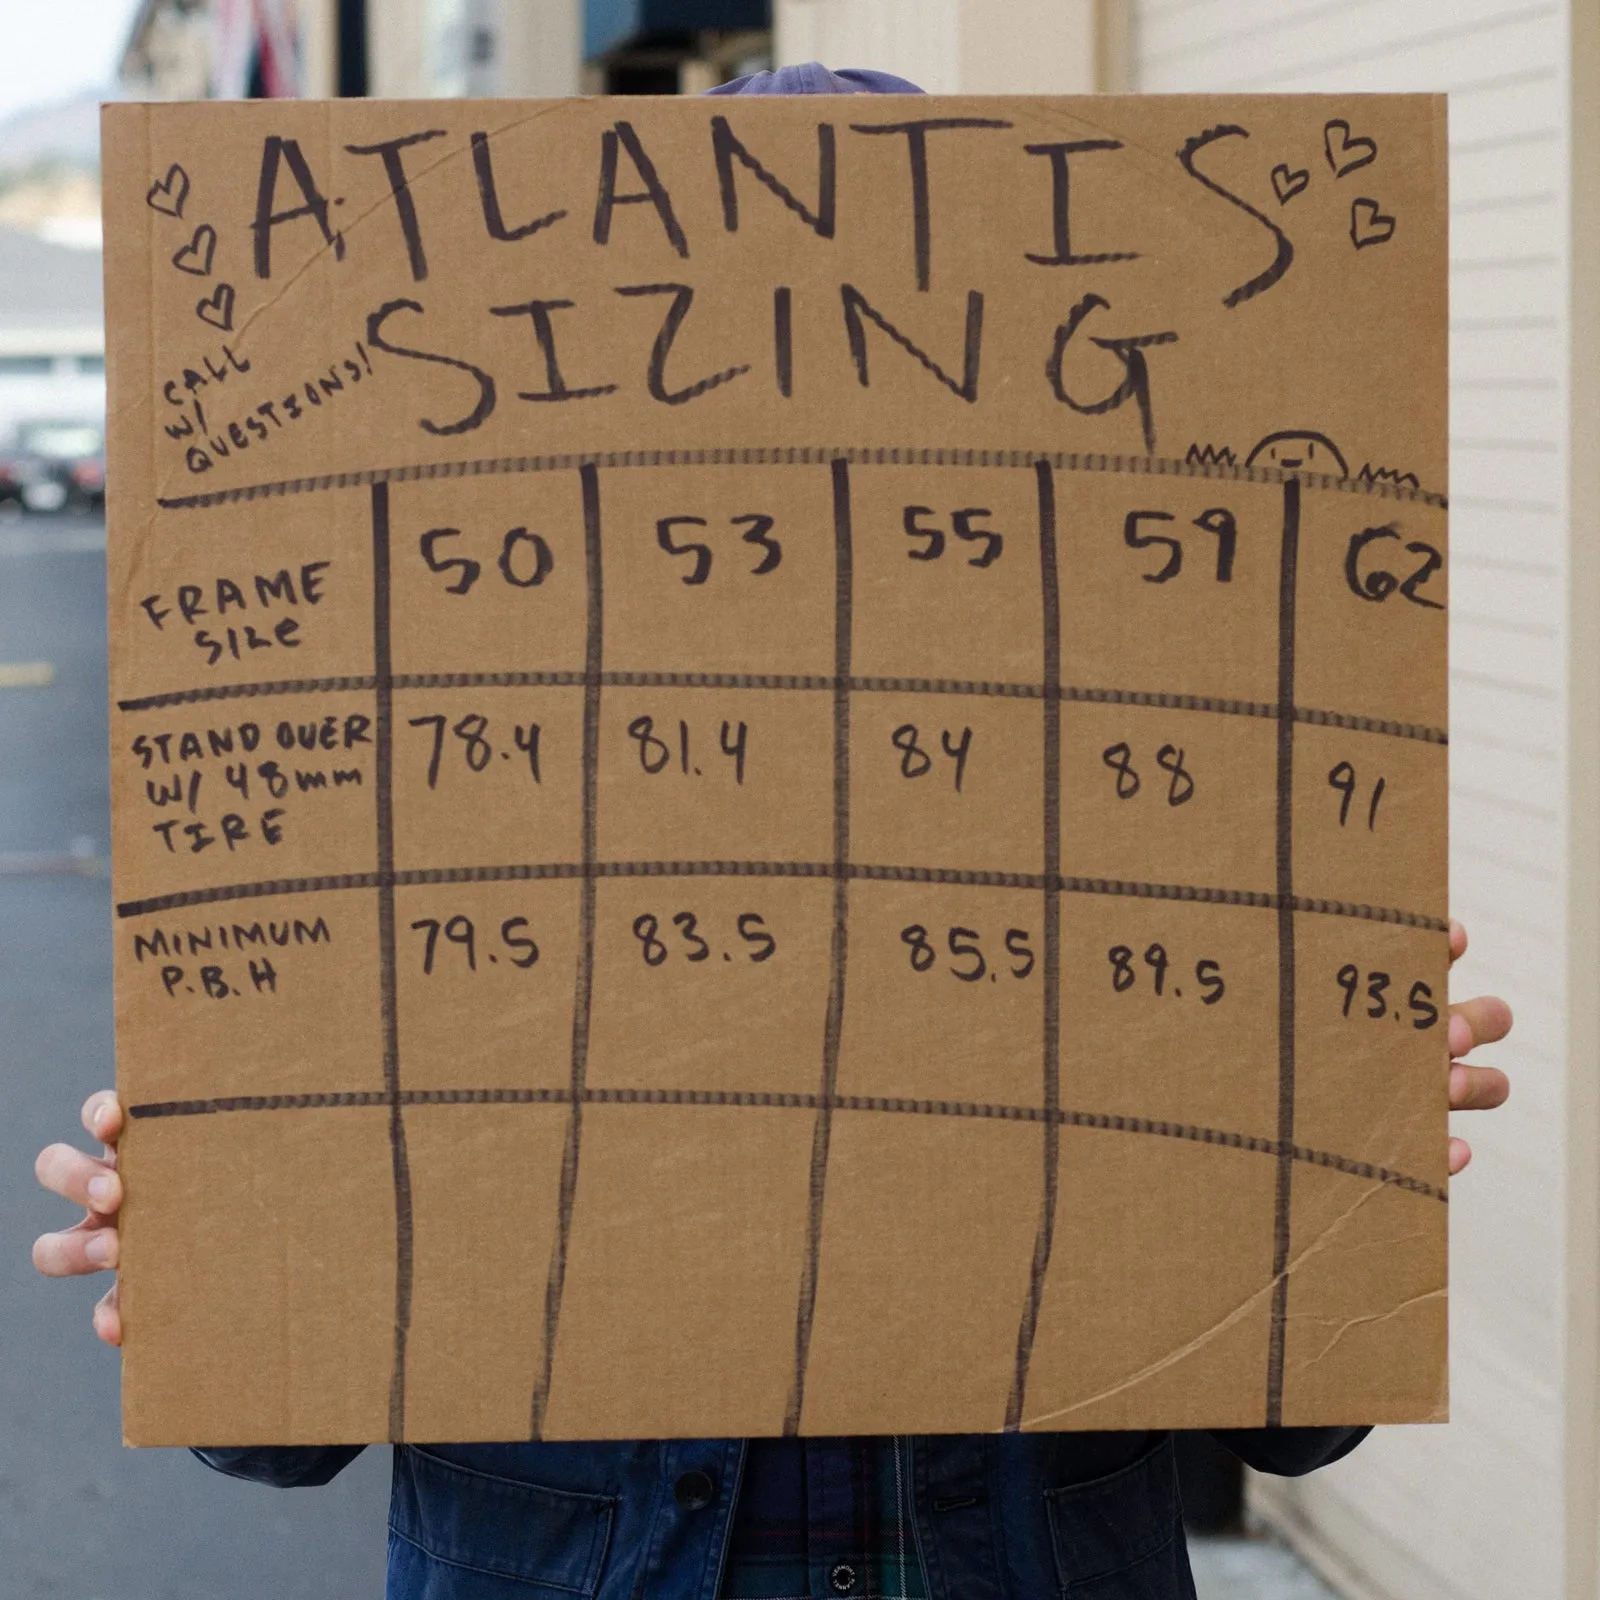 ATLANTIS
SIZING
CALL
W/
QUESTIONS!
FRAME
SIZE
50 53 55 59 62
STAND OVER
W/ 48mm
TIRE
78.4 81.4 84 88 91
MINIMUM
P.B.H
79.5 83.5 85.5 89.5 93.5